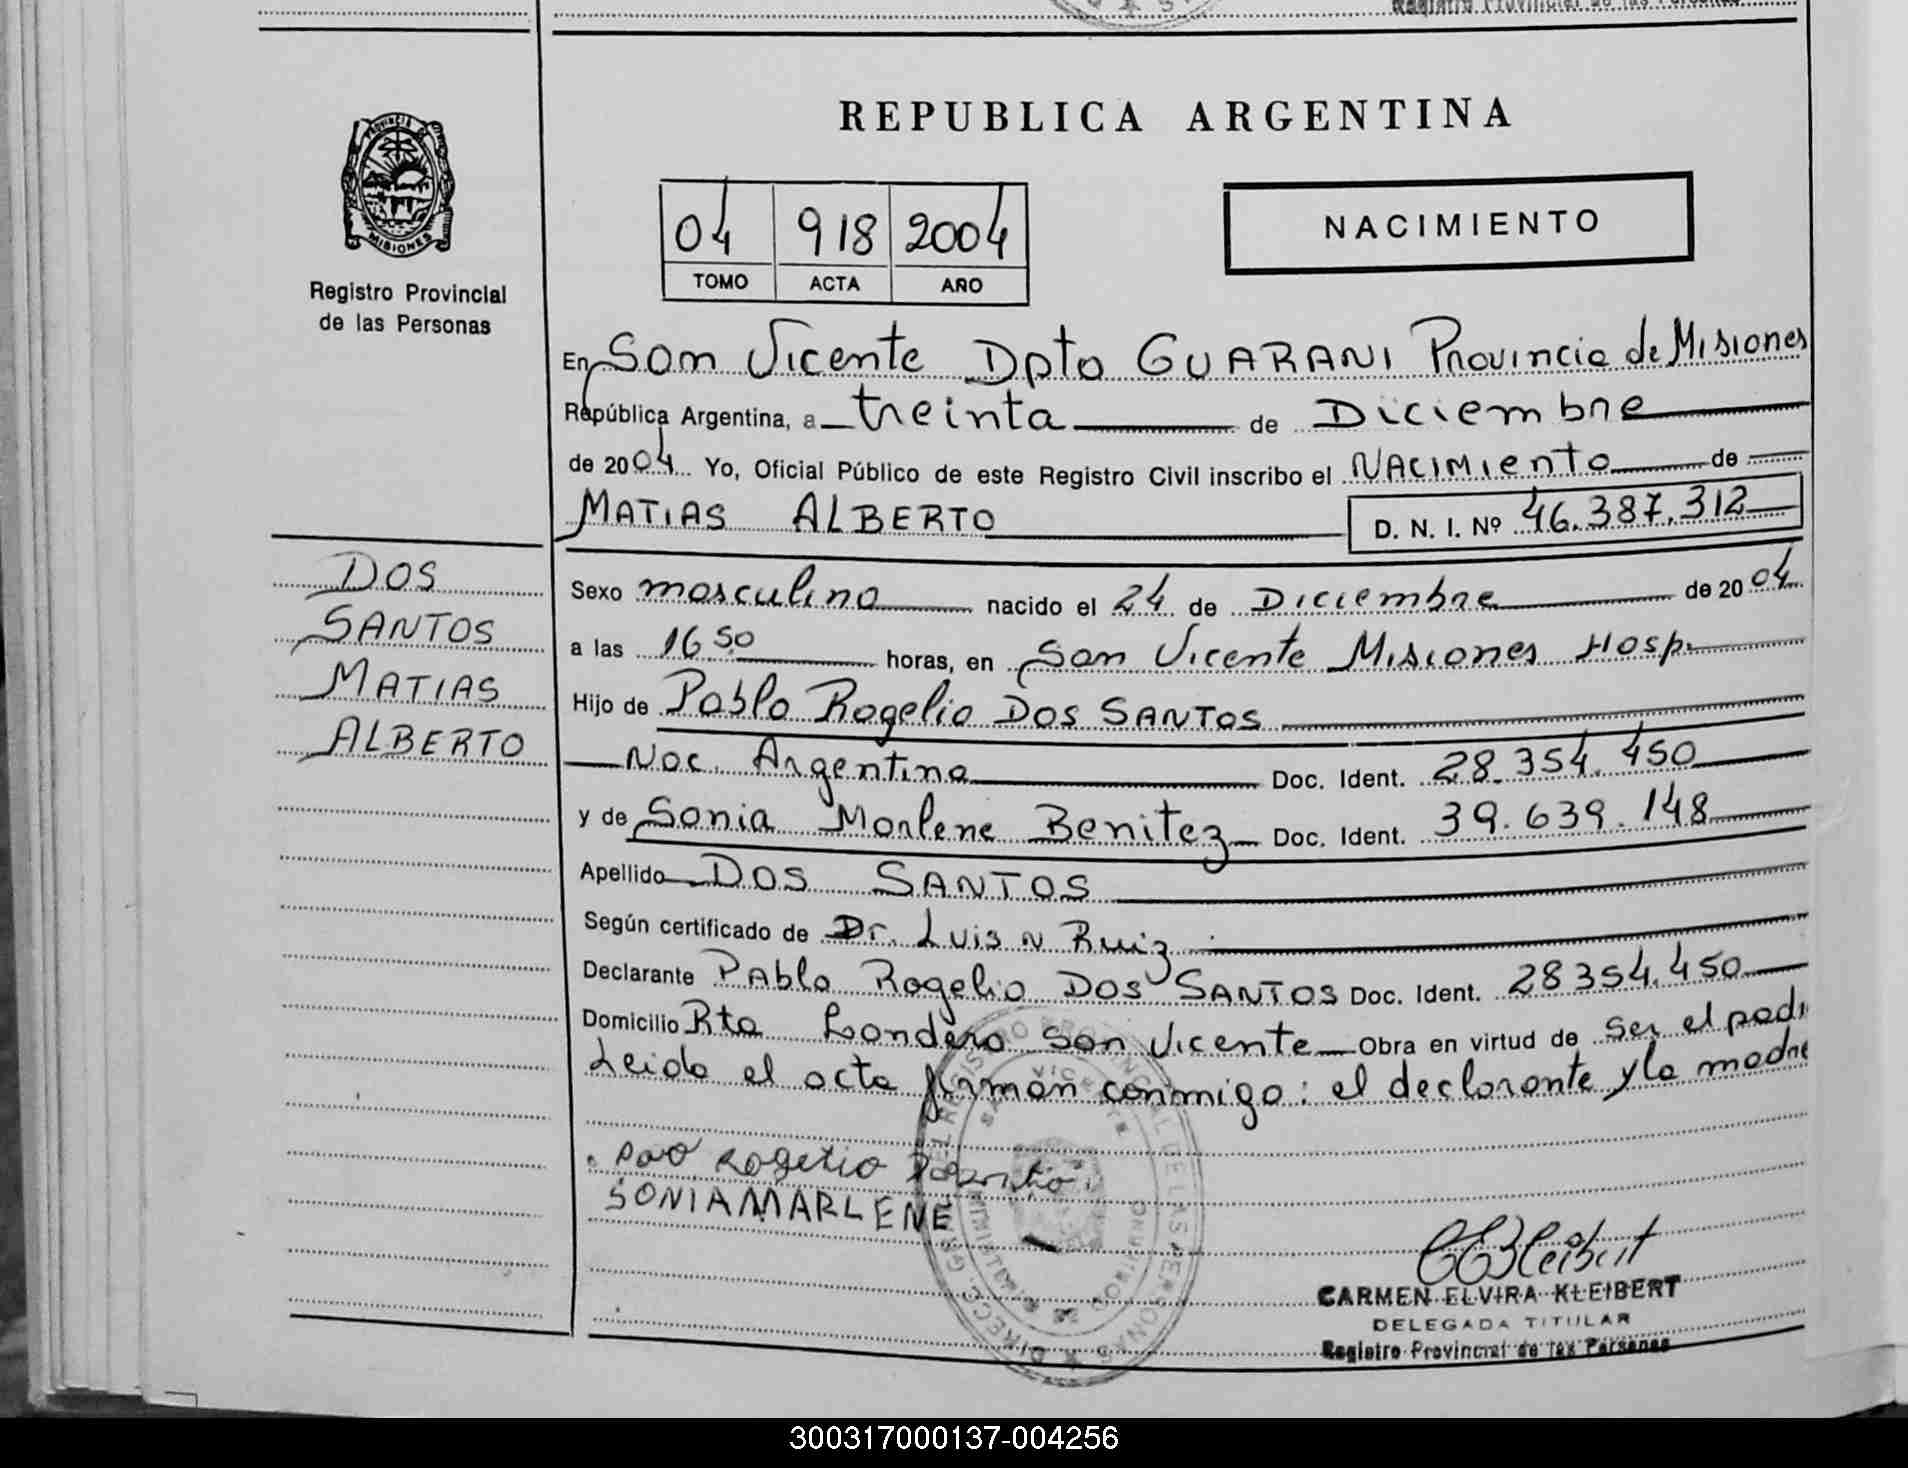 REPUBLICA ARGENTINA
PROVINCIA DE
MISIONES
Registro Provincial
de las Personas
04 918 2004
TOMO ACTA AÑO
NACIMIENTO
En San Vicente Dpto GUARANI Provincia de Misiones
República Argentina, a treinta de Diciembre
de 2004 Yo, Oficial Público de este Registro Civil inscribo el NACIMIENTO de
MATIAS ALBERTO D. N. I. Nº 46.387.312
DOS
SANTOS
MATIAS
ALBERTO
Sexo masculino nacido el 24 de Diciembre de 2004
a las 16 50 horas, en San Vicente Misiones Hosp.
Hijo de Pablo Rogelio DOS SANTOS
Nac. Argentina Doc. Ident. 28.354.450
y de Sonia Marlene Benitez Doc. Ident. 39.639.148
Apellido DOS SANTOS
Según certificado de Dr. Luis N Ruiz
Declarante Pablo Rogelio DOS SANTOS Doc. Ident. 28354.450
Domicilio Rta Londero San Vicente Obra en virtud de ser el padr
Leida el acta firman conmigo: el declarante y la madre
Rogelio
SONIA MARLENE
CARMEN ELVIRA KLEIBERT
DELEGADA TITULAR
Registro Provincial de las Personas
300317000137-004256